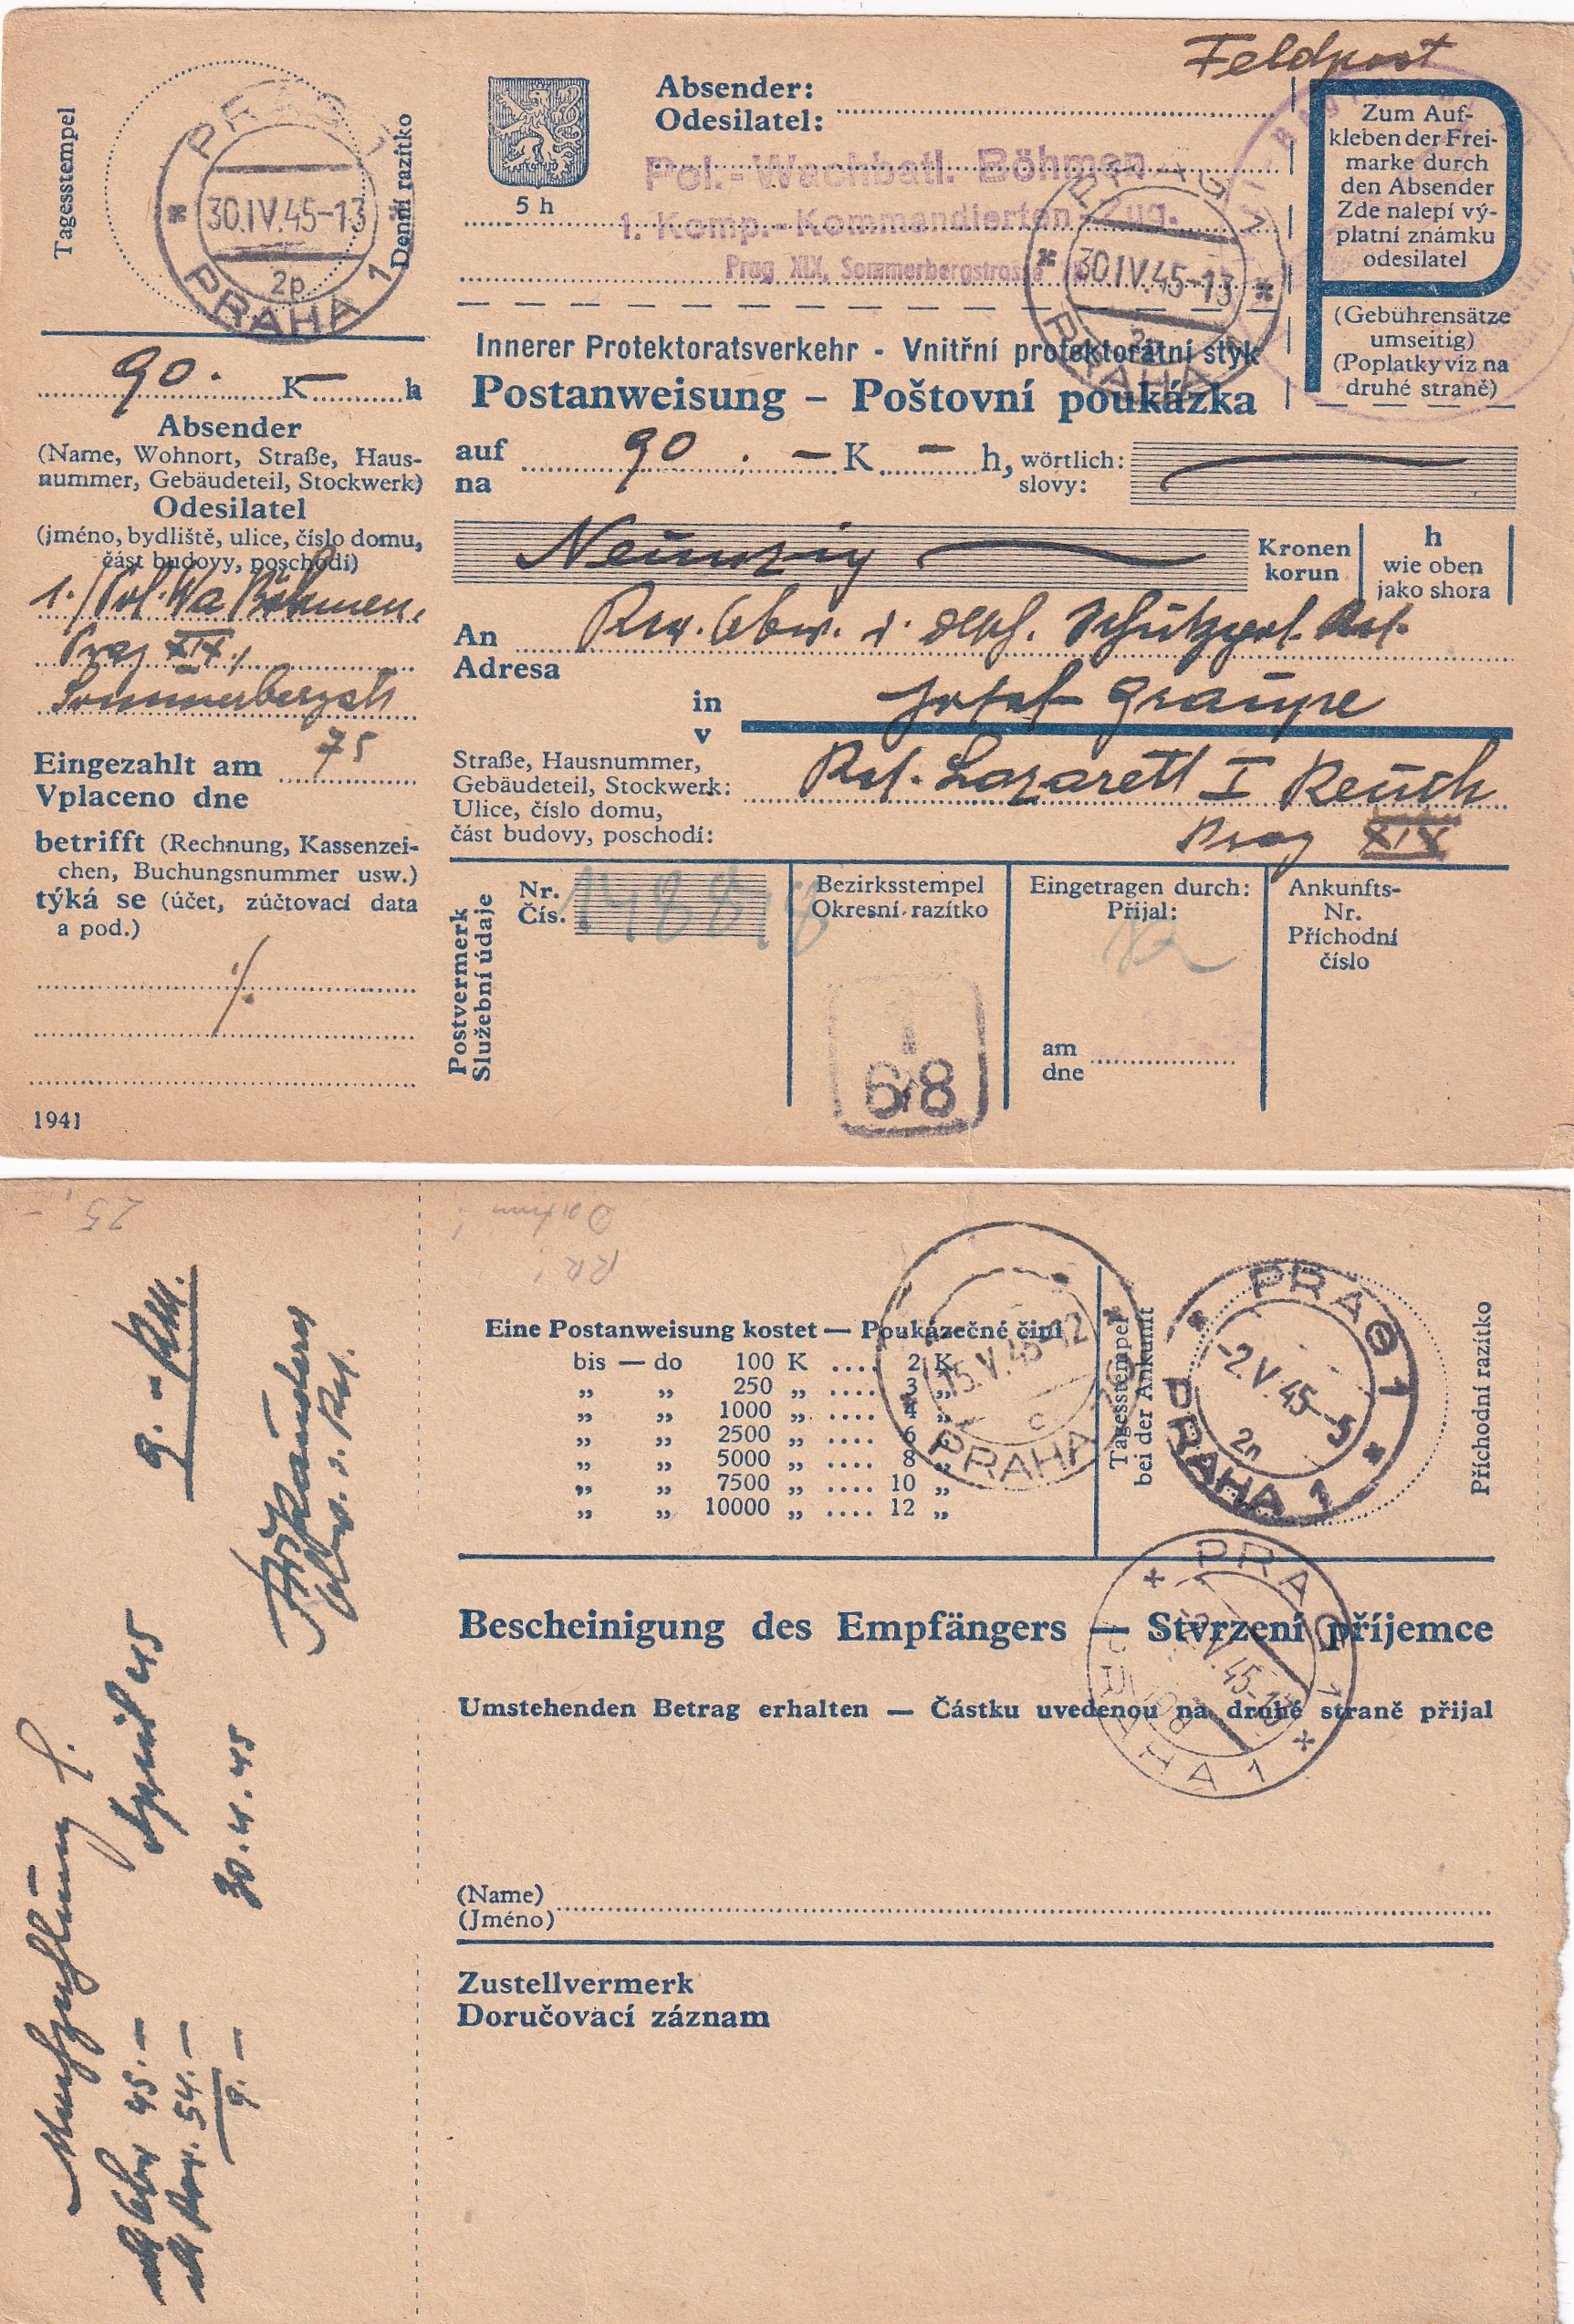 Feldpost
Tagesstempel
Denní razítko
PRAG 1
30.IV.45-13
2p
PRAHA 1
5 h
Absender:
Odesilatel:
Pol.-Wachbatl. Böhmen
1. Komp.-Kommandierten-Zug.
Prag XIX, Sommerbergstrasse
PRAG 1
30.IV.45-13
PRAHA 1
Zum Auf-
kleben der Frei-
marke durch
den Absender
Zde nalepí vý-
platní známku
odesilatel
(Gebührensätze
umseitig)
(Poplatky viz na
druhé straně)
Innerer Protektoratsverkehr - Vnitřní protektorátní styk
Postanweisung – Poštovní poukázka
90. K — h
Absender
(Name, Wohnort, Straße, Haus-
nummer, Gebäudeteil, Stockwerk)
Odesilatel
(jméno, bydliště, ulice, číslo domu,
část budovy, poschodí)
1./Pol. Wa Böhmen,
Prag XIX,
Sommerbergstr
75
Eingezahlt am
Vplaceno dne
betrifft (Rechnung, Kassenzei-
chen, Buchungsnummer usw.)
týká se (účet, zúčtovací data
a pod.)
1941
auf 90 . – K – h, wörtlich:
na slovy:
Neunzig
Kronen
korun
h
wie oben
jako shora
An
Adresa
Schutzpol. Res.
in Josef Graupe
v
Straße, Hausnummer,
Gebäudeteil, Stockwerk:
Ulice, číslo domu,
část budovy, poschodí:
Res. Lazarett I Reuth
Prag XIX
Postvermerk
Služební údaje
Nr.
Čís.
Bezirksstempel
Okresní razítko
68
Eingetragen durch:
Přijal:
am
dne
Ankunfts-
Nr.
Příchodní
číslo
25.-
Datum
RR
9.-RM.
April 45
30.4.45
45.—
54.—
9.—
Eine Postanweisung kostet — Poukázečné činí
bis — do 100 K .... 2 K
„ „ 250 „ .... 3 „
„ „ 1000 „ .... 4 „
„ „ 2500 „ .... 6 „
„ „ 5000 „ .... 8 „
„ „ 7500 „ .... 10 „
„ „ 10000 „ .... 12 „
15.V.45-12
c
PRAHA
Tagesstempel
bei der Ankunft
PRAG 1
-2.V.45-5
2n
PRAHA 1
Příchodní razítko
Bescheinigung des Empfängers — Stvrzení příjemce
PRAG 1
-2.V.45-13
PRAHA 1
Umstehenden Betrag erhalten — Částku uvedenou na druhé straně přijal
(Name)
(Jméno)
Zustellvermerk
Doručovací záznam